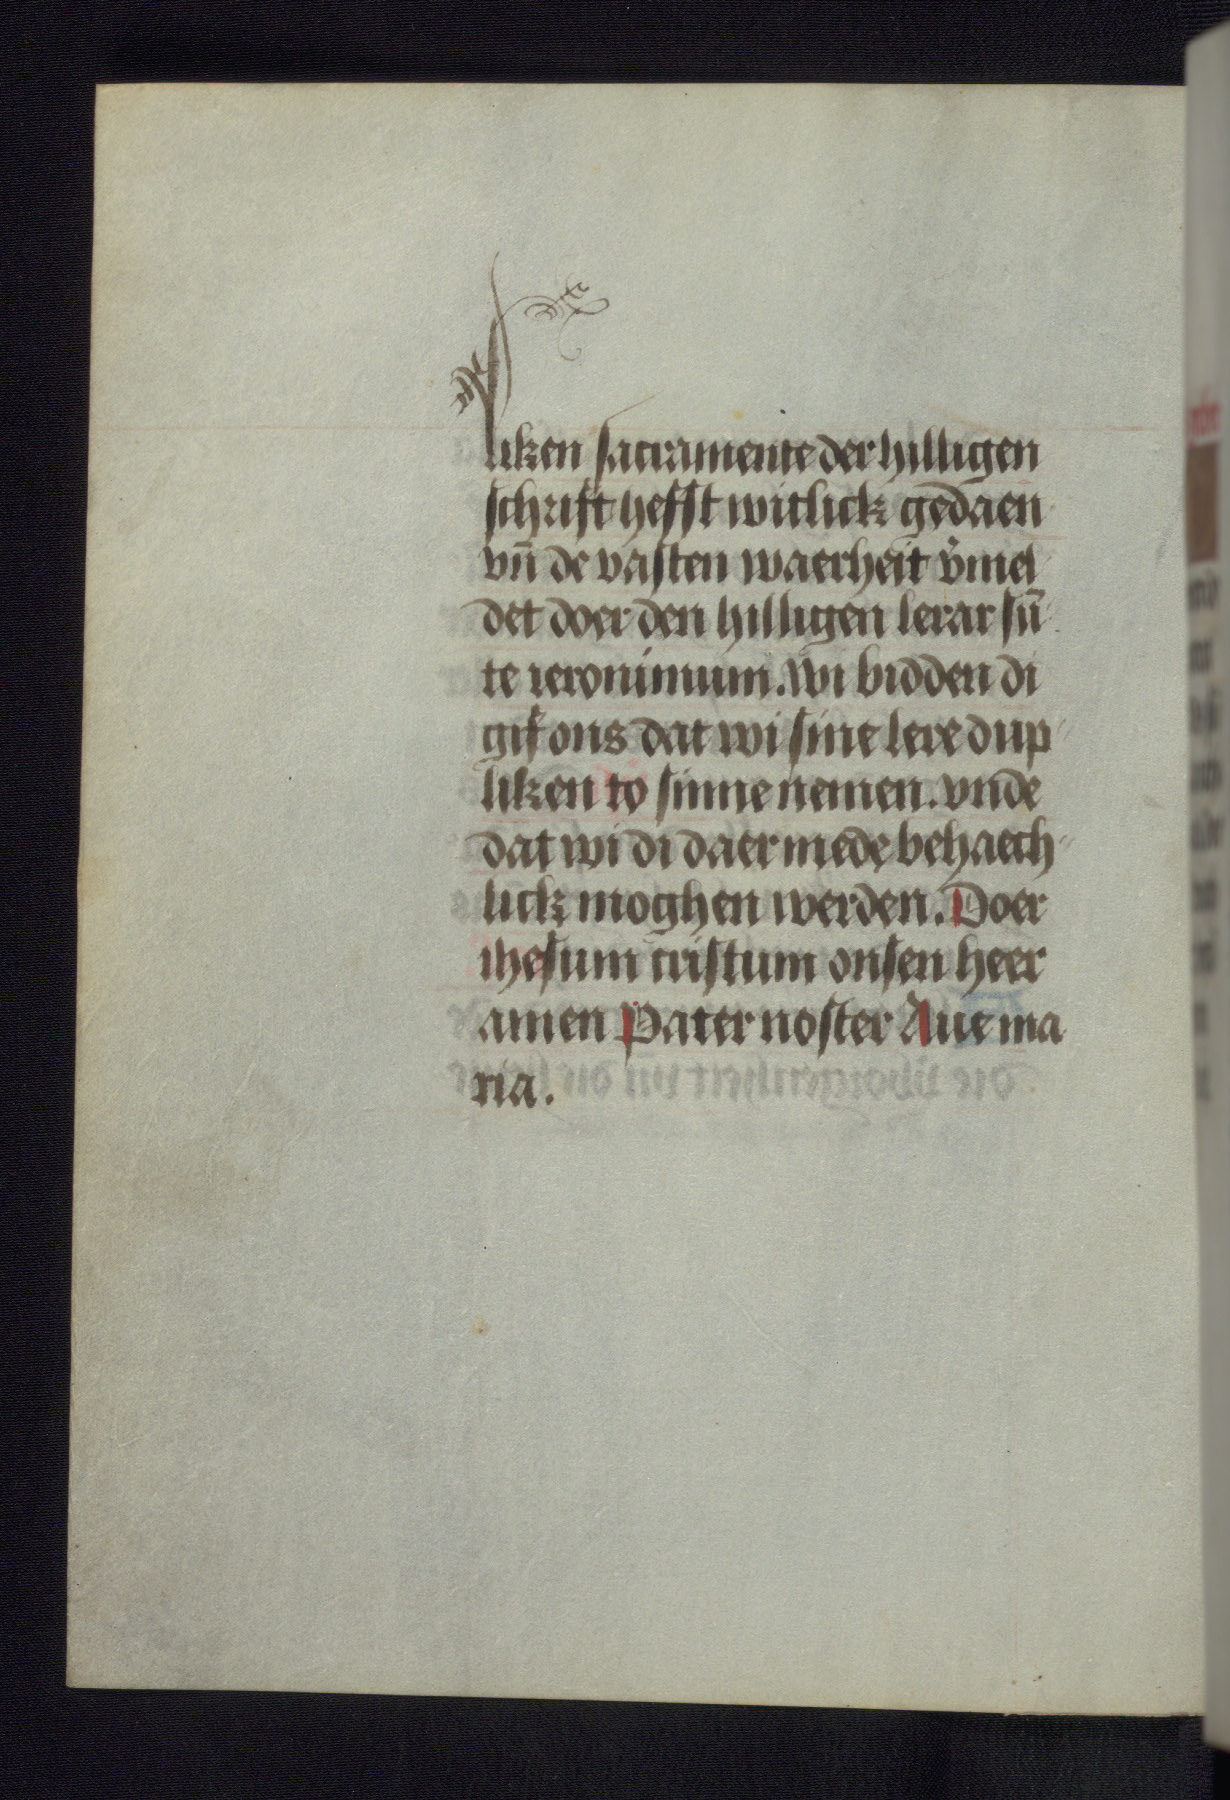 liken sacramente der hilligen
schrift hefft witlick gedaen
vn̄ de vasten waerheit v̄mel
det doer den hilligen lerar sū
te ieronimum. Wi bidden di
gif ons dat wi sine lere dup
liken to sinne nemen. vnde
dat wi di daer mede behaech
lick moghen werden. Doer
ihesum cristum onsen heer
amen Pater noster Aue ma
ria.